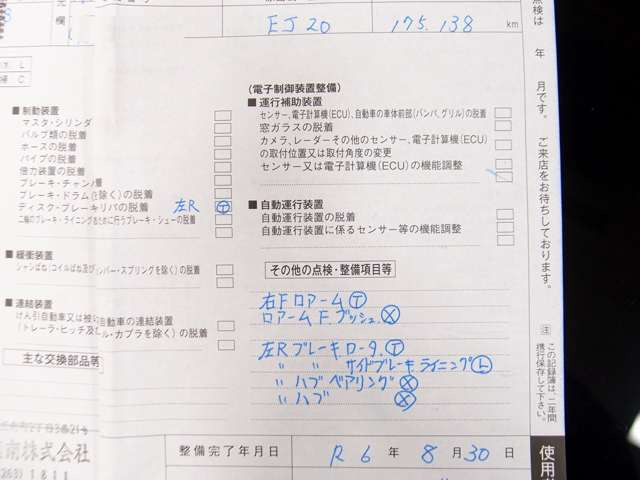 EJ20 175,138 km
点検は
年
月です。
ご来店をお待ちしております。
(電子制御装置整備)
■ 運行補助装置
センサー、電子計算機(ECU)、自動車の車体前部(バンパ、グリル)の脱着
窓ガラスの脱着
カメラ、レーダーその他のセンサー、電子計算機(ECU)
の取付位置又は取付角度の変更
センサー又は電子計算機(ECU)の機能調整
■ 自動運行装置
自動運行装置の脱着
自動運行装置に係るセンサー等の機能調整
■ 制動装置
マスタ・シリンダ
バルブ類の脱着
ホースの脱着
パイプの脱着
倍力装置の脱着
ブレーキ・チャンバ
ブレーキ・ドラム(を除く)の脱着
ディスク・ブレーキリパの脱着 左R Ⓣ
二輪のブレーキ・ライニング
行うブレーキ・シューの脱着
■ 緩衝装置
シャシばね(コイルばね及び
ンバー・スプリングを除く)の脱着
■ 連結装置
けん引自動車又は被
自動車の連結装置
(トレーラ・ヒッチ及
ル・カプラを除く)の脱着
主な交換部品等
その他の点検・整備項目等
右FロアームⓉ
ロアームF.ブッシュ.Ⓧ
左Rブレーキロータ.Ⓣ
〃 〃 サイドブレーキライニングⓁ
〃 ハブベアリングⓍ
〃 ハブ Ⓧ
南株式会社
263)1811
整備完了年月日 R 6 年 8 月 30 日
注
この記録簿は、二年間
携行保存して下さい。
使用